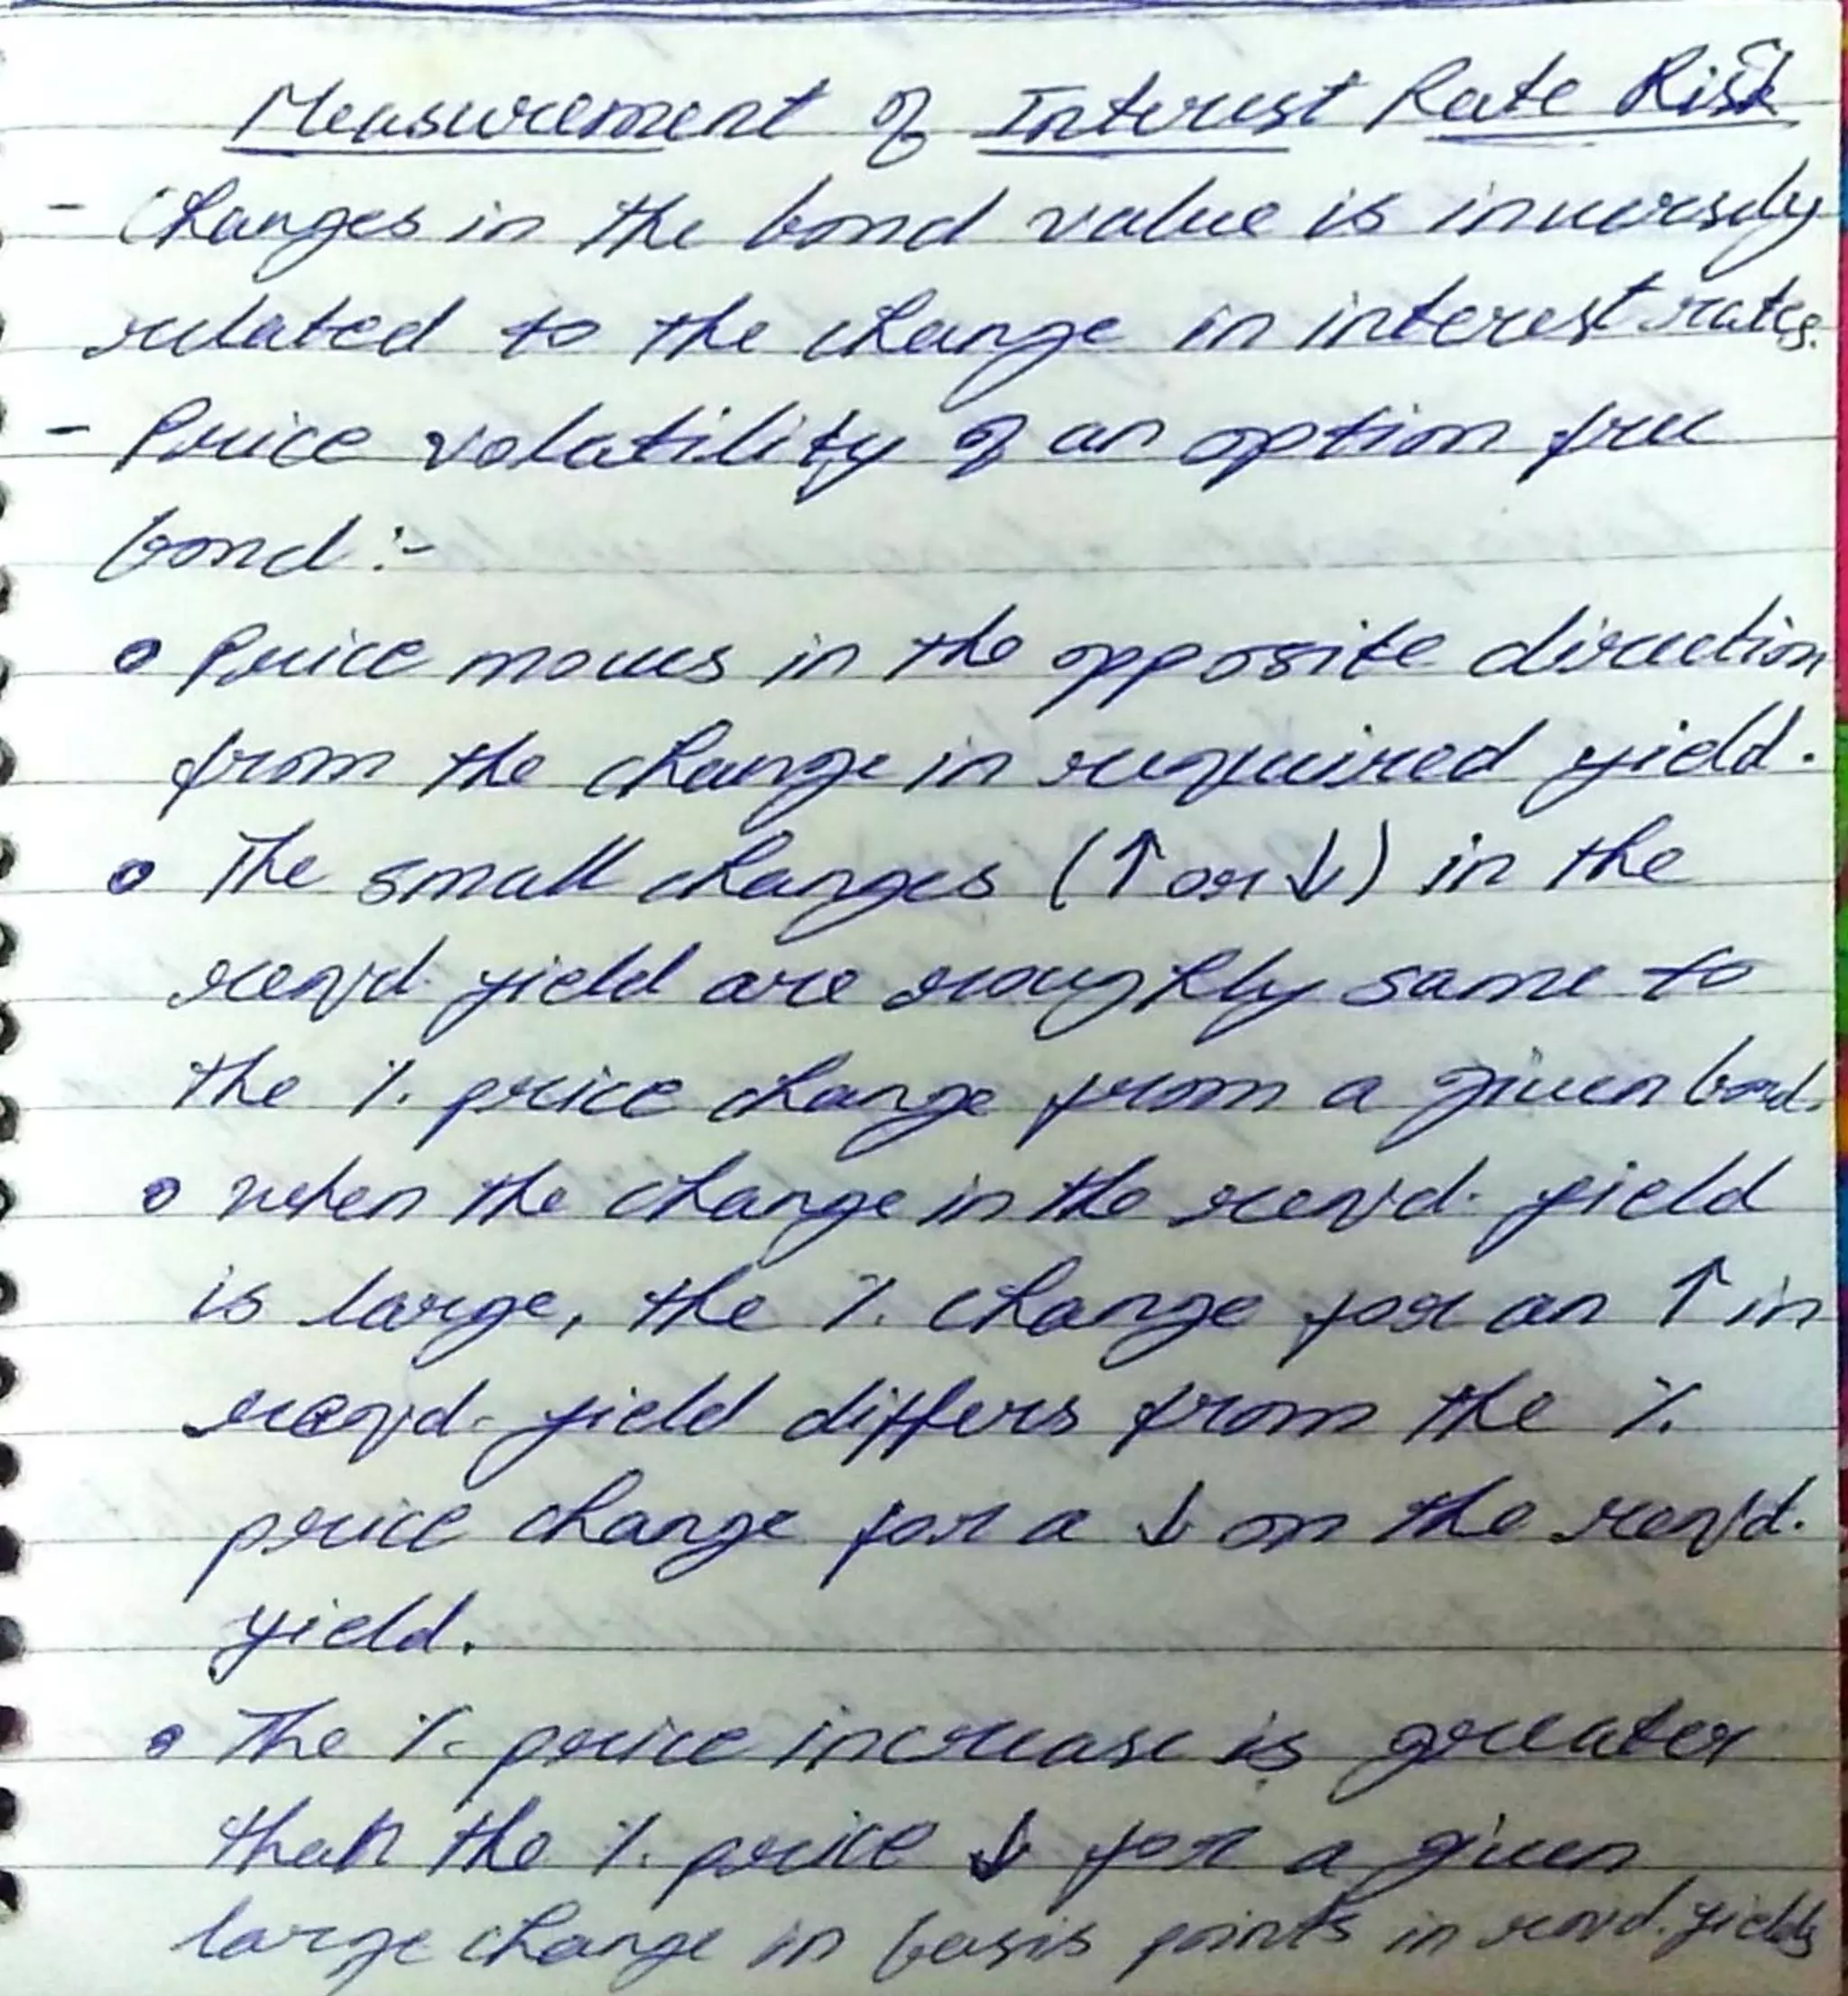 Measurement of Interest Rate Risk
- Changes in the bond value is inversely
related to the change in interest rates.
- Price volatility of an option free
bond :-
• Price moves in the opposite direction
from the change in required yield.
• The small changes (↑ or ↓) in the
req'd. yield are roughly same to
the %. price change from a given bond.
• when the change in the req'd. yield
is large, the %. change for an ↑ in
req'd. yield differs from the %.
price change for a ↓ on the req'd.
yield.
• The %. price increase is greater
than the %. price ↓ for a given
large change in basis points in req'd. yields